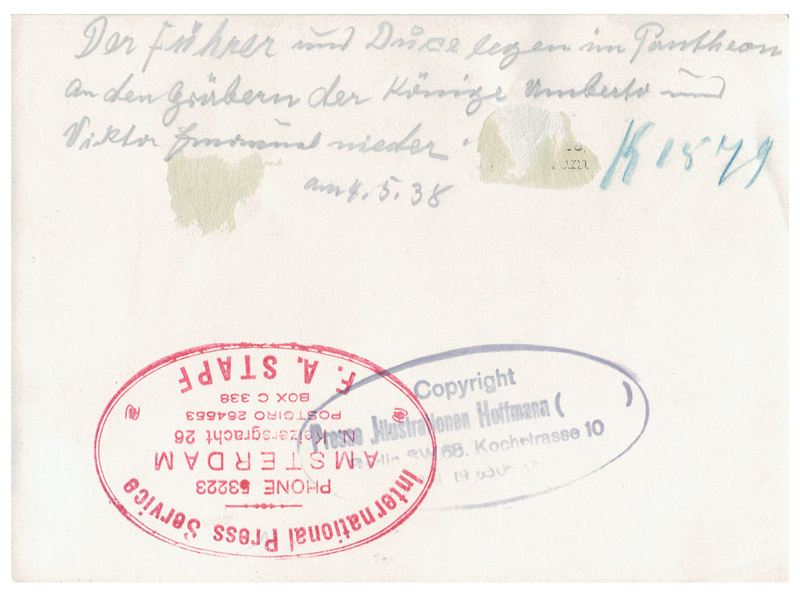 Der Führer und Duce legen im Pantheon
an den Gräbern der Könige Umberto und
Viktor Emanuel nieder
K 1579
am 4.5.38
Copyright
Presse Illustrationen Hoffmann ( )
Berlin SW 68. Kochstrasse 10
International Press Service
PHONE 53223
AMSTERDAM
N. Keizersgracht 26
POSTGIRO 264653
BOX C 338
F. A. STAPF